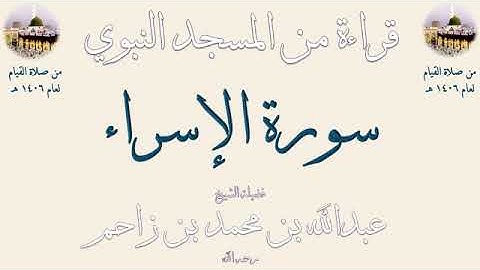 قراءة من المسجد النبوي
من صلاة القيام
لعام ١٤٠٦ هـ
من صلاة القيام
لعام ١٤٠٦ هـ
سورة الإسراء
فضيلة الشيخ
عبدالله بن محمد بن زاحم
رحمه الله